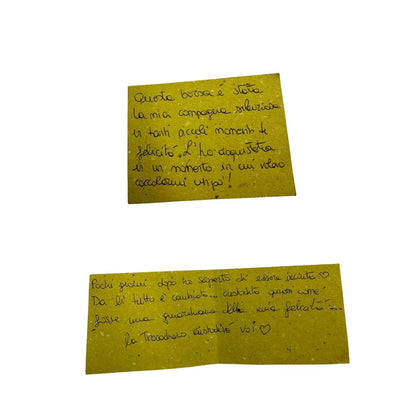 Questa borsa è stata
la mia compagna silenziosa
in tanti piccoli momenti di
felicità. L'ho acquistata
in un momento in cui volevo
coccolarmi un po'!
Pochi giorni dopo ho scoperto di essere incinta ♡
Da lì tutto è cambiato... custodita quasi come
fosse una guardiana della mia felicità...
la Trocadero custoditela voi ♡